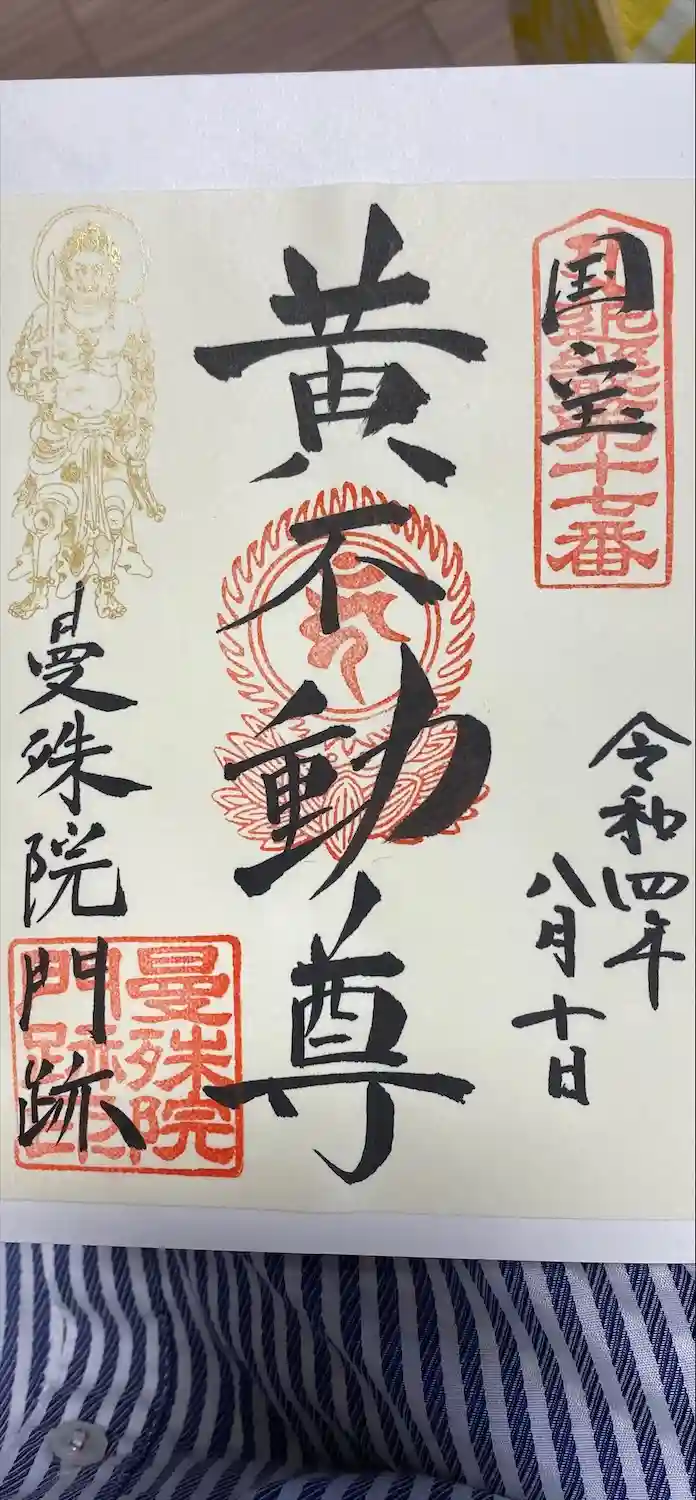 国宝
第十七番
令和四年
八月十日
黄不動尊
曼殊院門跡
曼殊院
門跡印